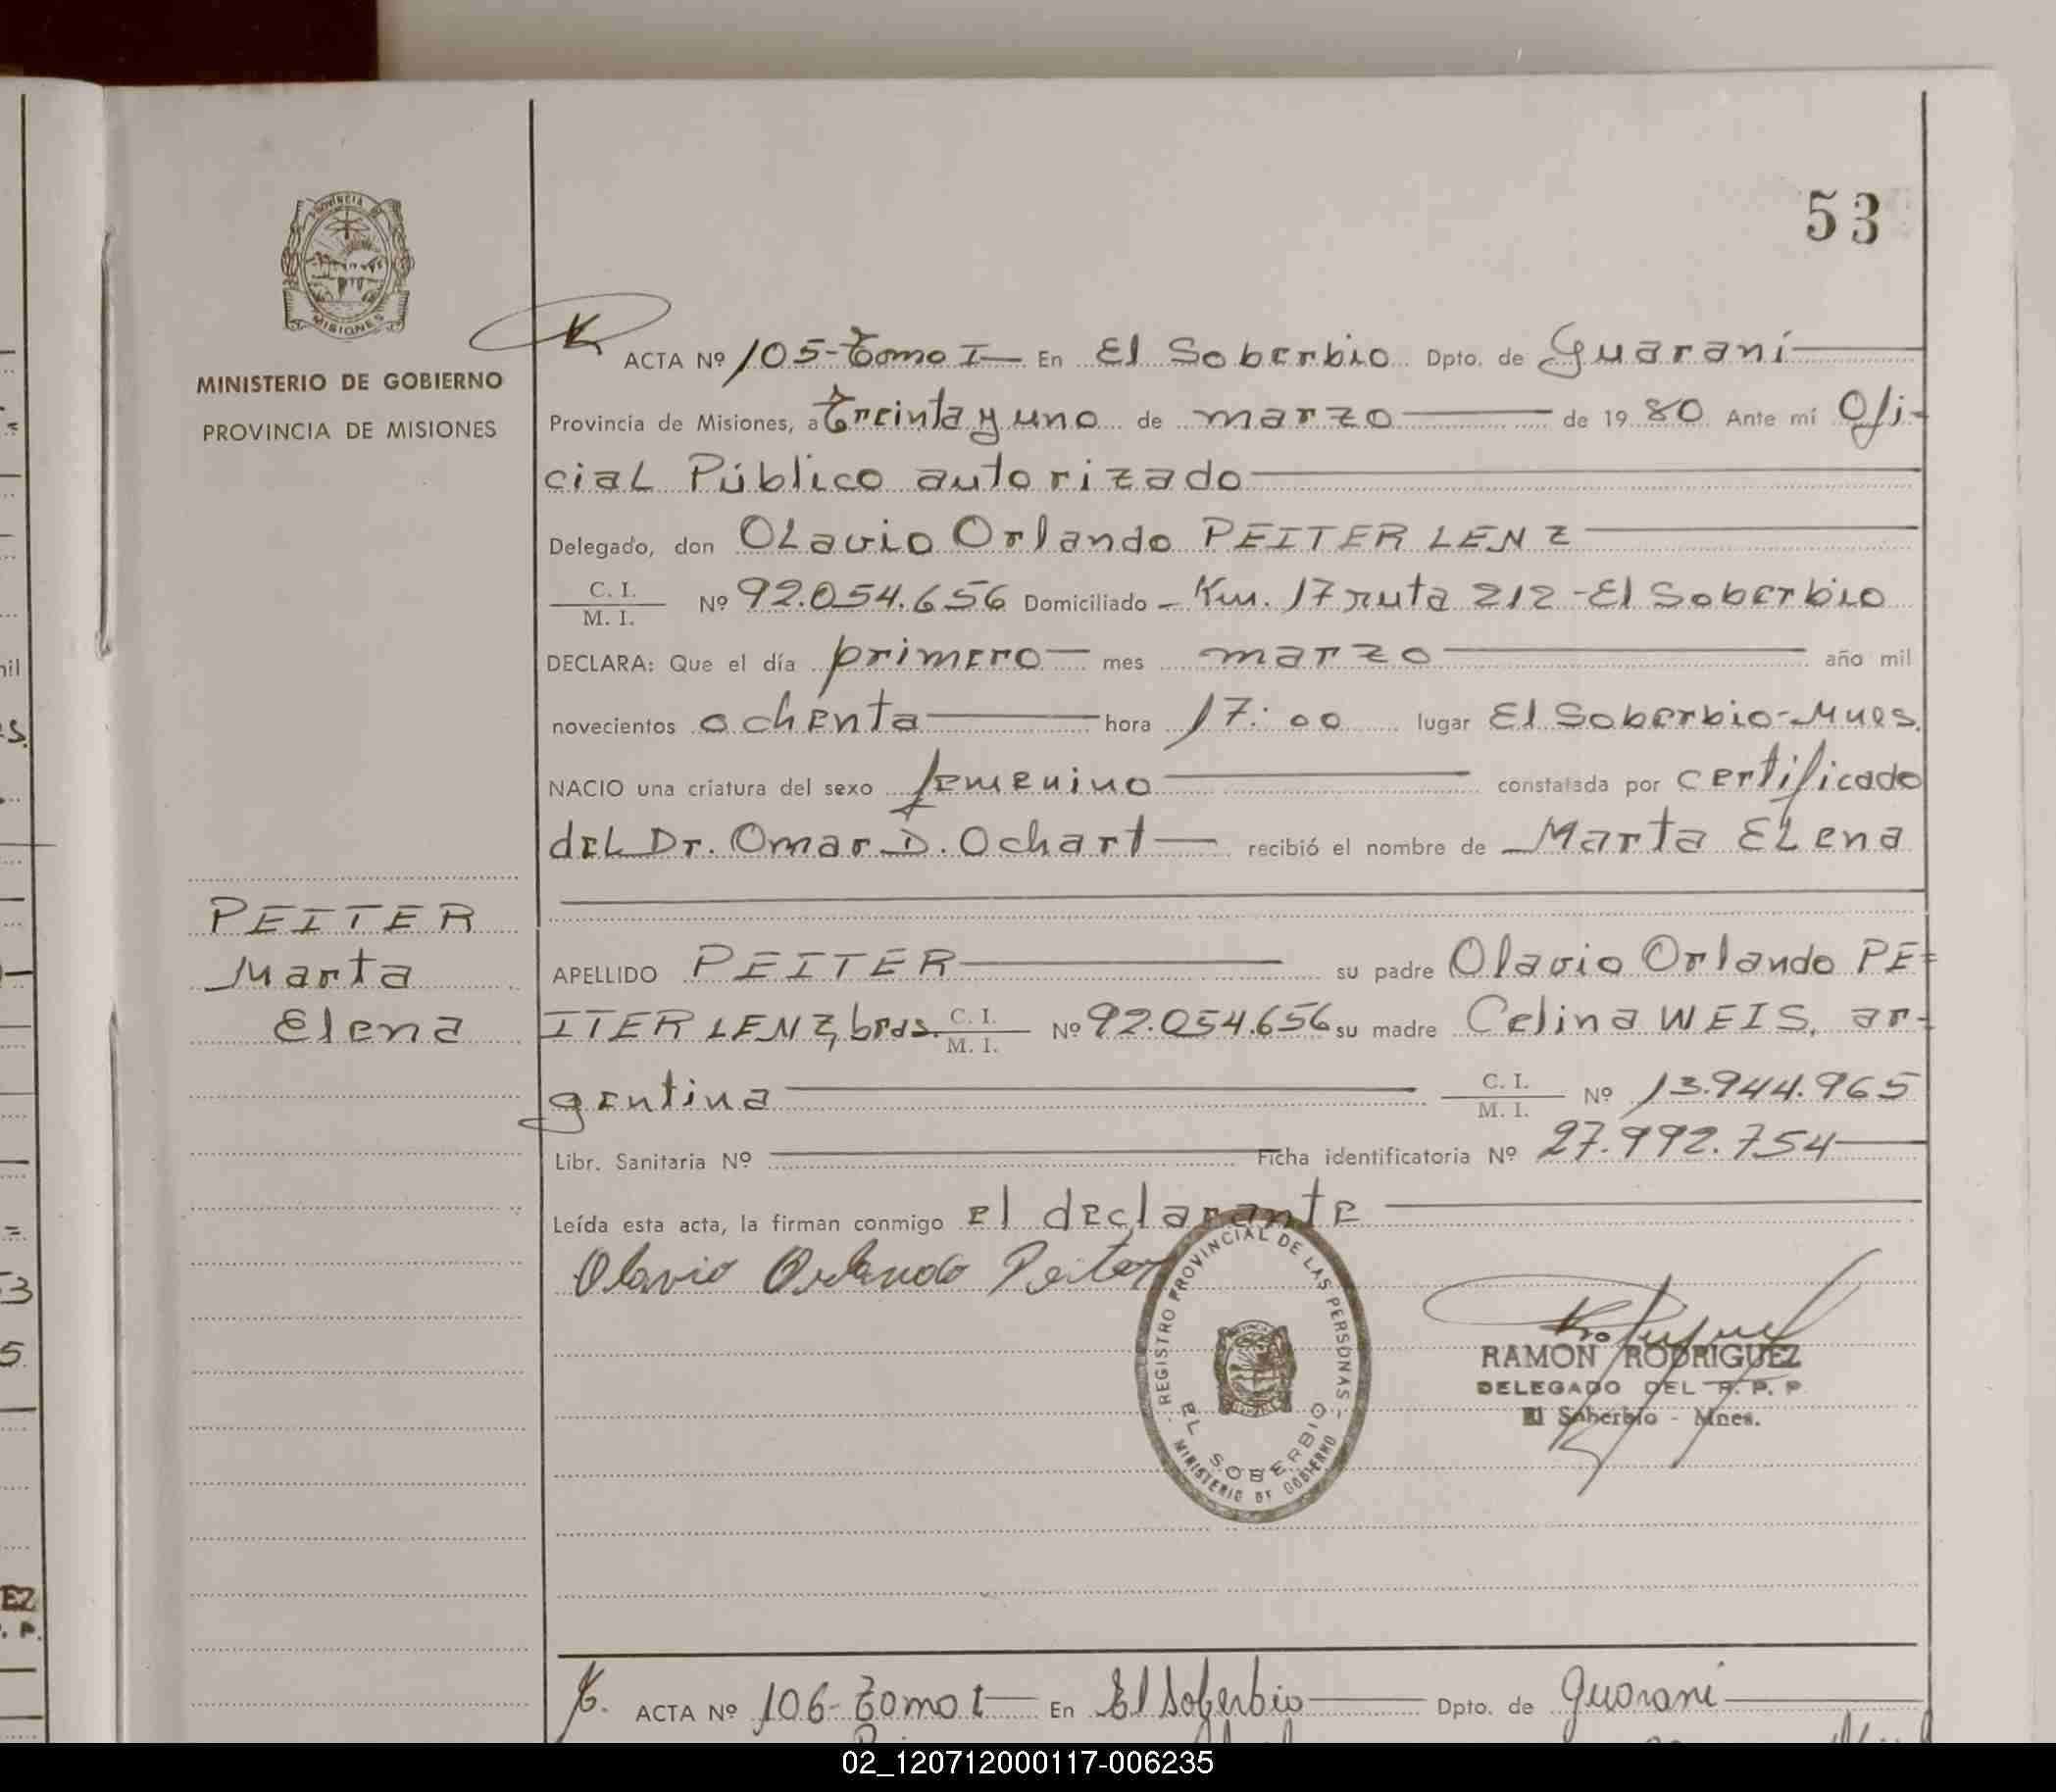 53
PROVINCIA DE
MISIONES
MINISTERIO DE GOBIERNO
PROVINCIA DE MISIONES
ACTA Nº 105-Tomo I — En El Soberbio Dpto. de Guaraní
Provincia de Misiones, a Treinta y uno de marzo de 1980 Ante mí Ofi-
cial Público autorizado
Delegado, don Olavio Orlando PEITER LENZ
C. I.
M. I. Nº 92.054.656 Domiciliado - Km. 17 ruta 212 - El Soberbio
DECLARA: Que el día primero mes marzo año mil
novecientos ochenta hora 17:00 lugar El Soberbio-Mnes.
NACIO una criatura del sexo femenino constatada por certificado
del Dr. Omar D. Ochart recibió el nombre de Marta Elena
PEITER
Marta
Elena
APELLIDO PEITER su padre Olavio Orlando PE=
ITER LENZ, bras. C. I. M. I. Nº 92.054.656 su madre Celina WEIS, ar-
gentina C. I. M. I. Nº 13.944.965
Libr. Sanitaria Nº Ficha identificatoria Nº 27.992.754
Leída esta acta, la firman conmigo el declarante
Olavio Orlando Peiter
REGISTRO PROVINCIAL DE LAS PERSONAS
EL SOBERBIO
MINISTERIO DE GOBIERNO
RAMON RODRIGUEZ
DELEGADO DEL R. P. P
El Soberbio - Mnes.
ACTA Nº 106-Tomo I En El Soberbio Dpto. de Guaraní
02_120712000117-006235